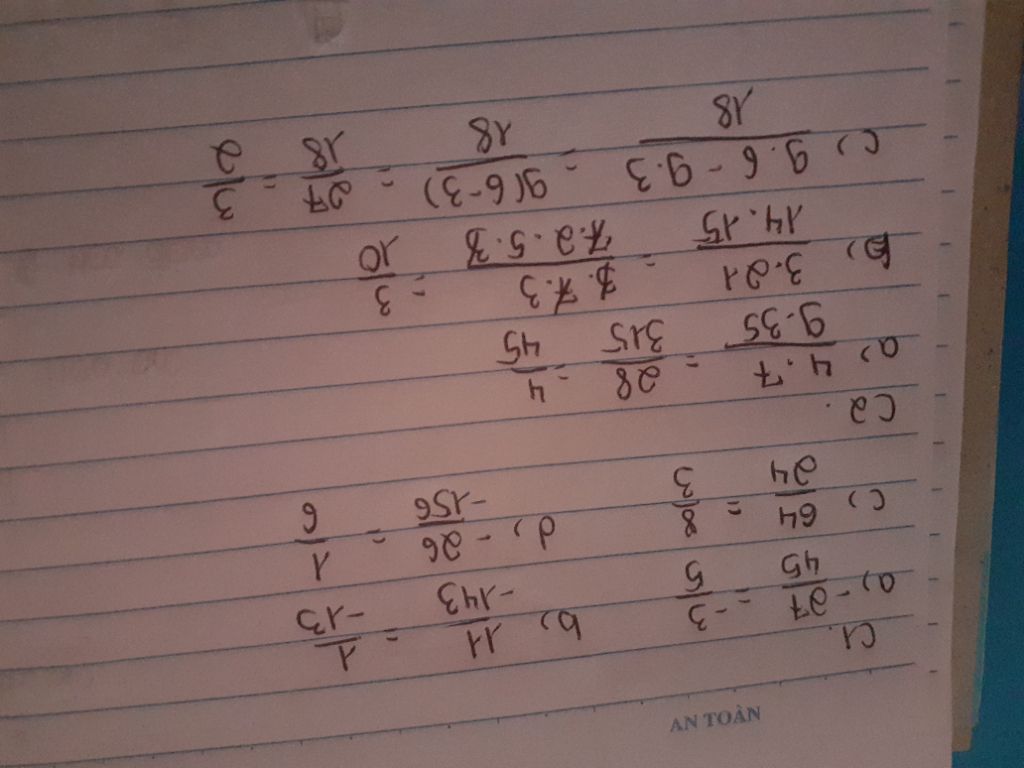 AN TOÀN
C1.
a, -27/45 = -3/5 b, 11/-143 = 1/-13
c, 64/24 = 8/3 d, -26/-156 = 1/6
C2.
a, 4.7/9.35 = 28/315 = 4/45
b, 3.21/14.15 = 3.7.3/7.2.5.3 = 3/10
c, 9.6-9.3/18 = 9(6-3)/18 = 27/18 = 3/2